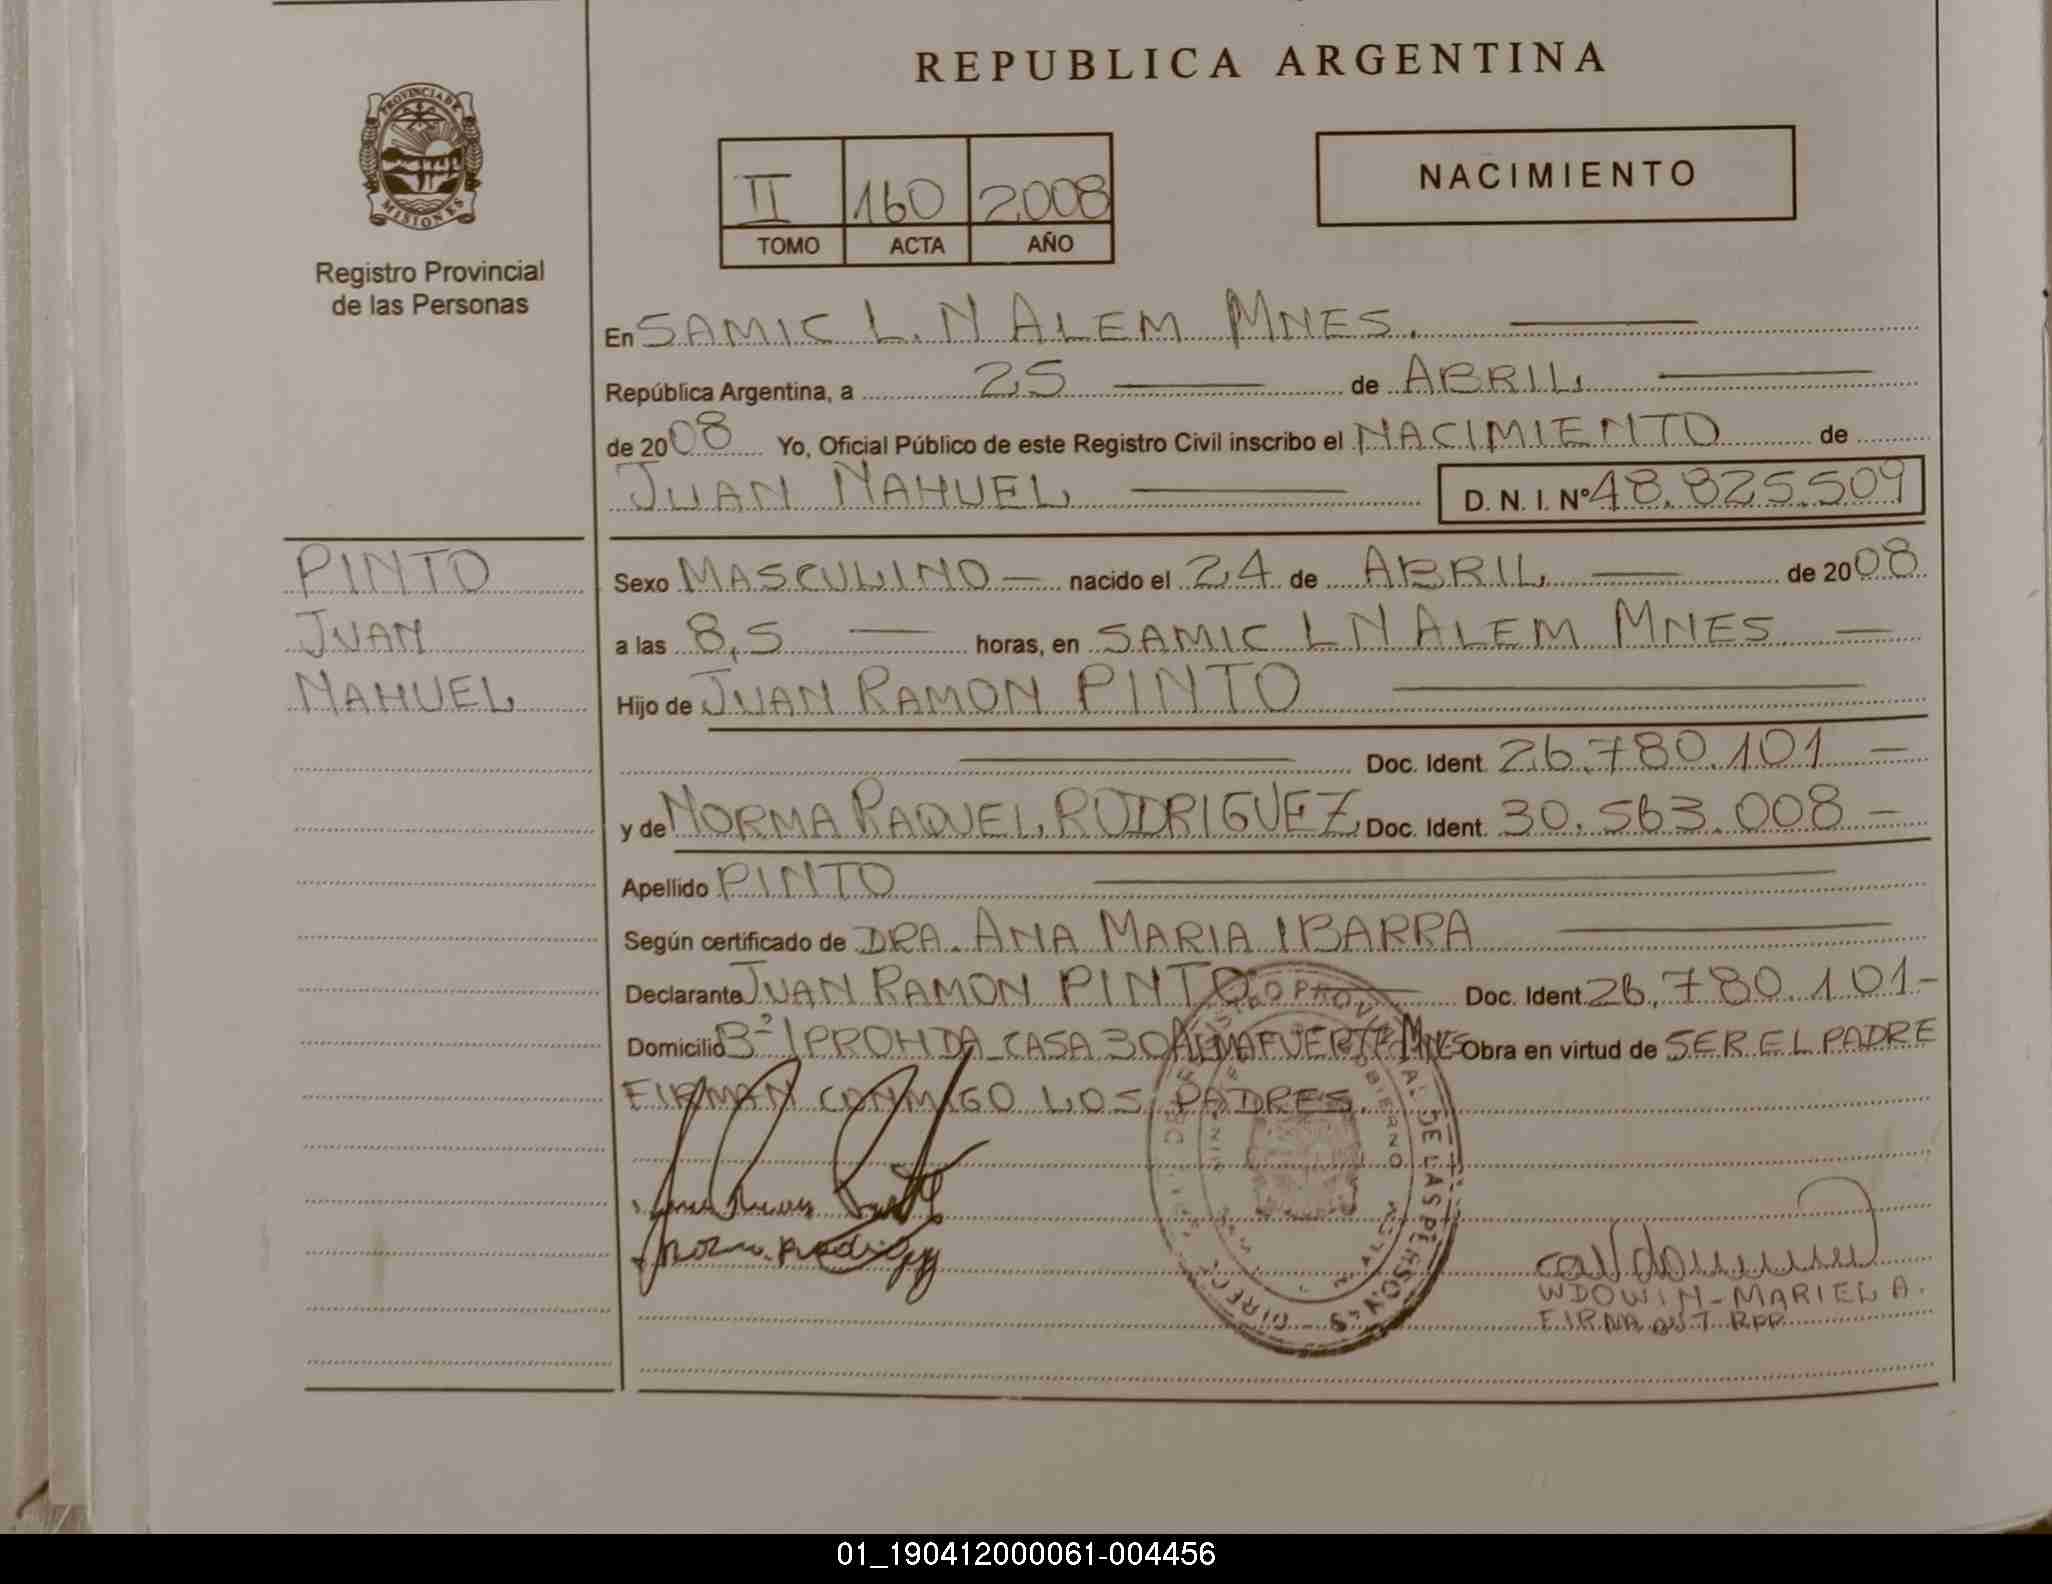 REPUBLICA ARGENTINA
PROVINCIA DE
MISIONES
Registro Provincial
de las Personas
II 160 2008
TOMO ACTA AÑO
NACIMIENTO
En SAMIC L.N ALEM MNES.
República Argentina, a 25 de ABRIL
de 2008 Yo, Oficial Público de este Registro Civil inscribo el NACIMIENTO de
JUAN NAHUEL D. N. I. Nº 48.825.509
PINTO
JUAN
NAHUEL
Sexo MASCULINO nacido el 24 de ABRIL de 2008
a las 8,5 horas, en SAMIC LN ALEM MNES
Hijo de JUAN RAMON PINTO
Doc. Ident. 26.780.101
y de NORMA RAQUEL RODRIGUEZ Doc. Ident. 30.563.008
Apellido PINTO
Según certificado de DRA. ANA MARIA IBARRA
Declarante JUAN RAMON PINTO Doc. Ident. 26.780.101
Domicilio Bº IPRODHA CASA 30 ALMAFUERTE MNES Obra en virtud de SER EL PADRE
FIRMAN CONMIGO LOS PADRES.
REGISTRO PROVINCIAL DE LAS PERSONAS
WDOWIN-MARIEL A.
FIRMA AUT RPP
01_190412000061-004456